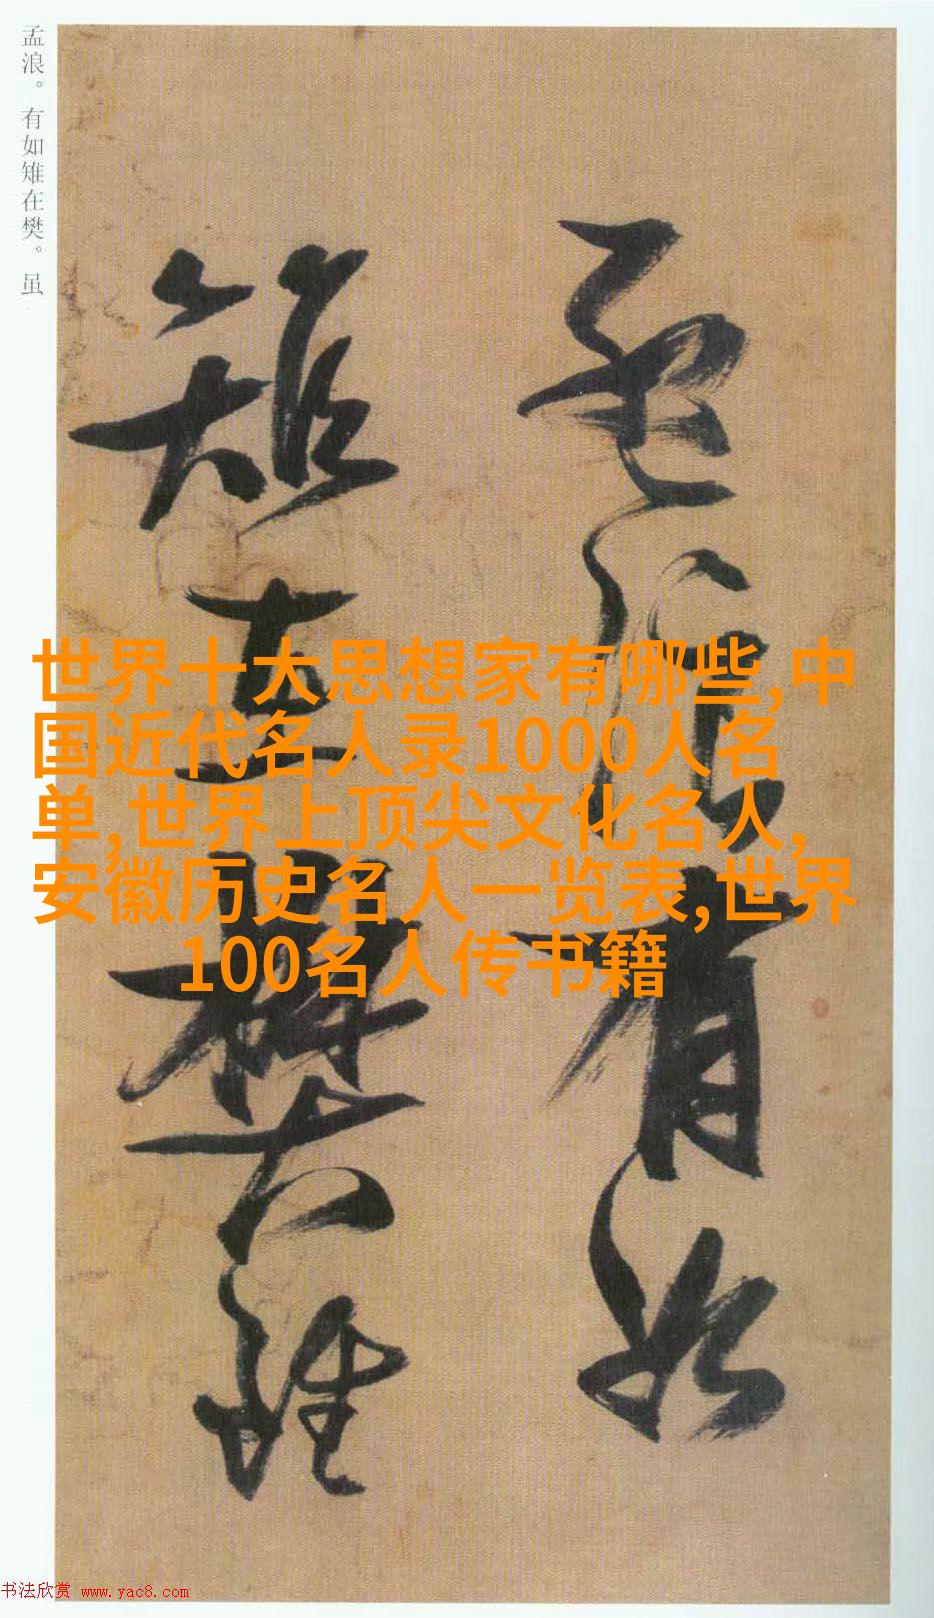 孟浪。有如雉在樊。虽
孟浪有如
雉在樊雖
世界十大思想家有哪些,中
国近代名人录1000人名
单,世界上顶尖文化名人,
安徽历史名人一览表,世界
100名人传书籍
书法欣赏 www.yac8.com